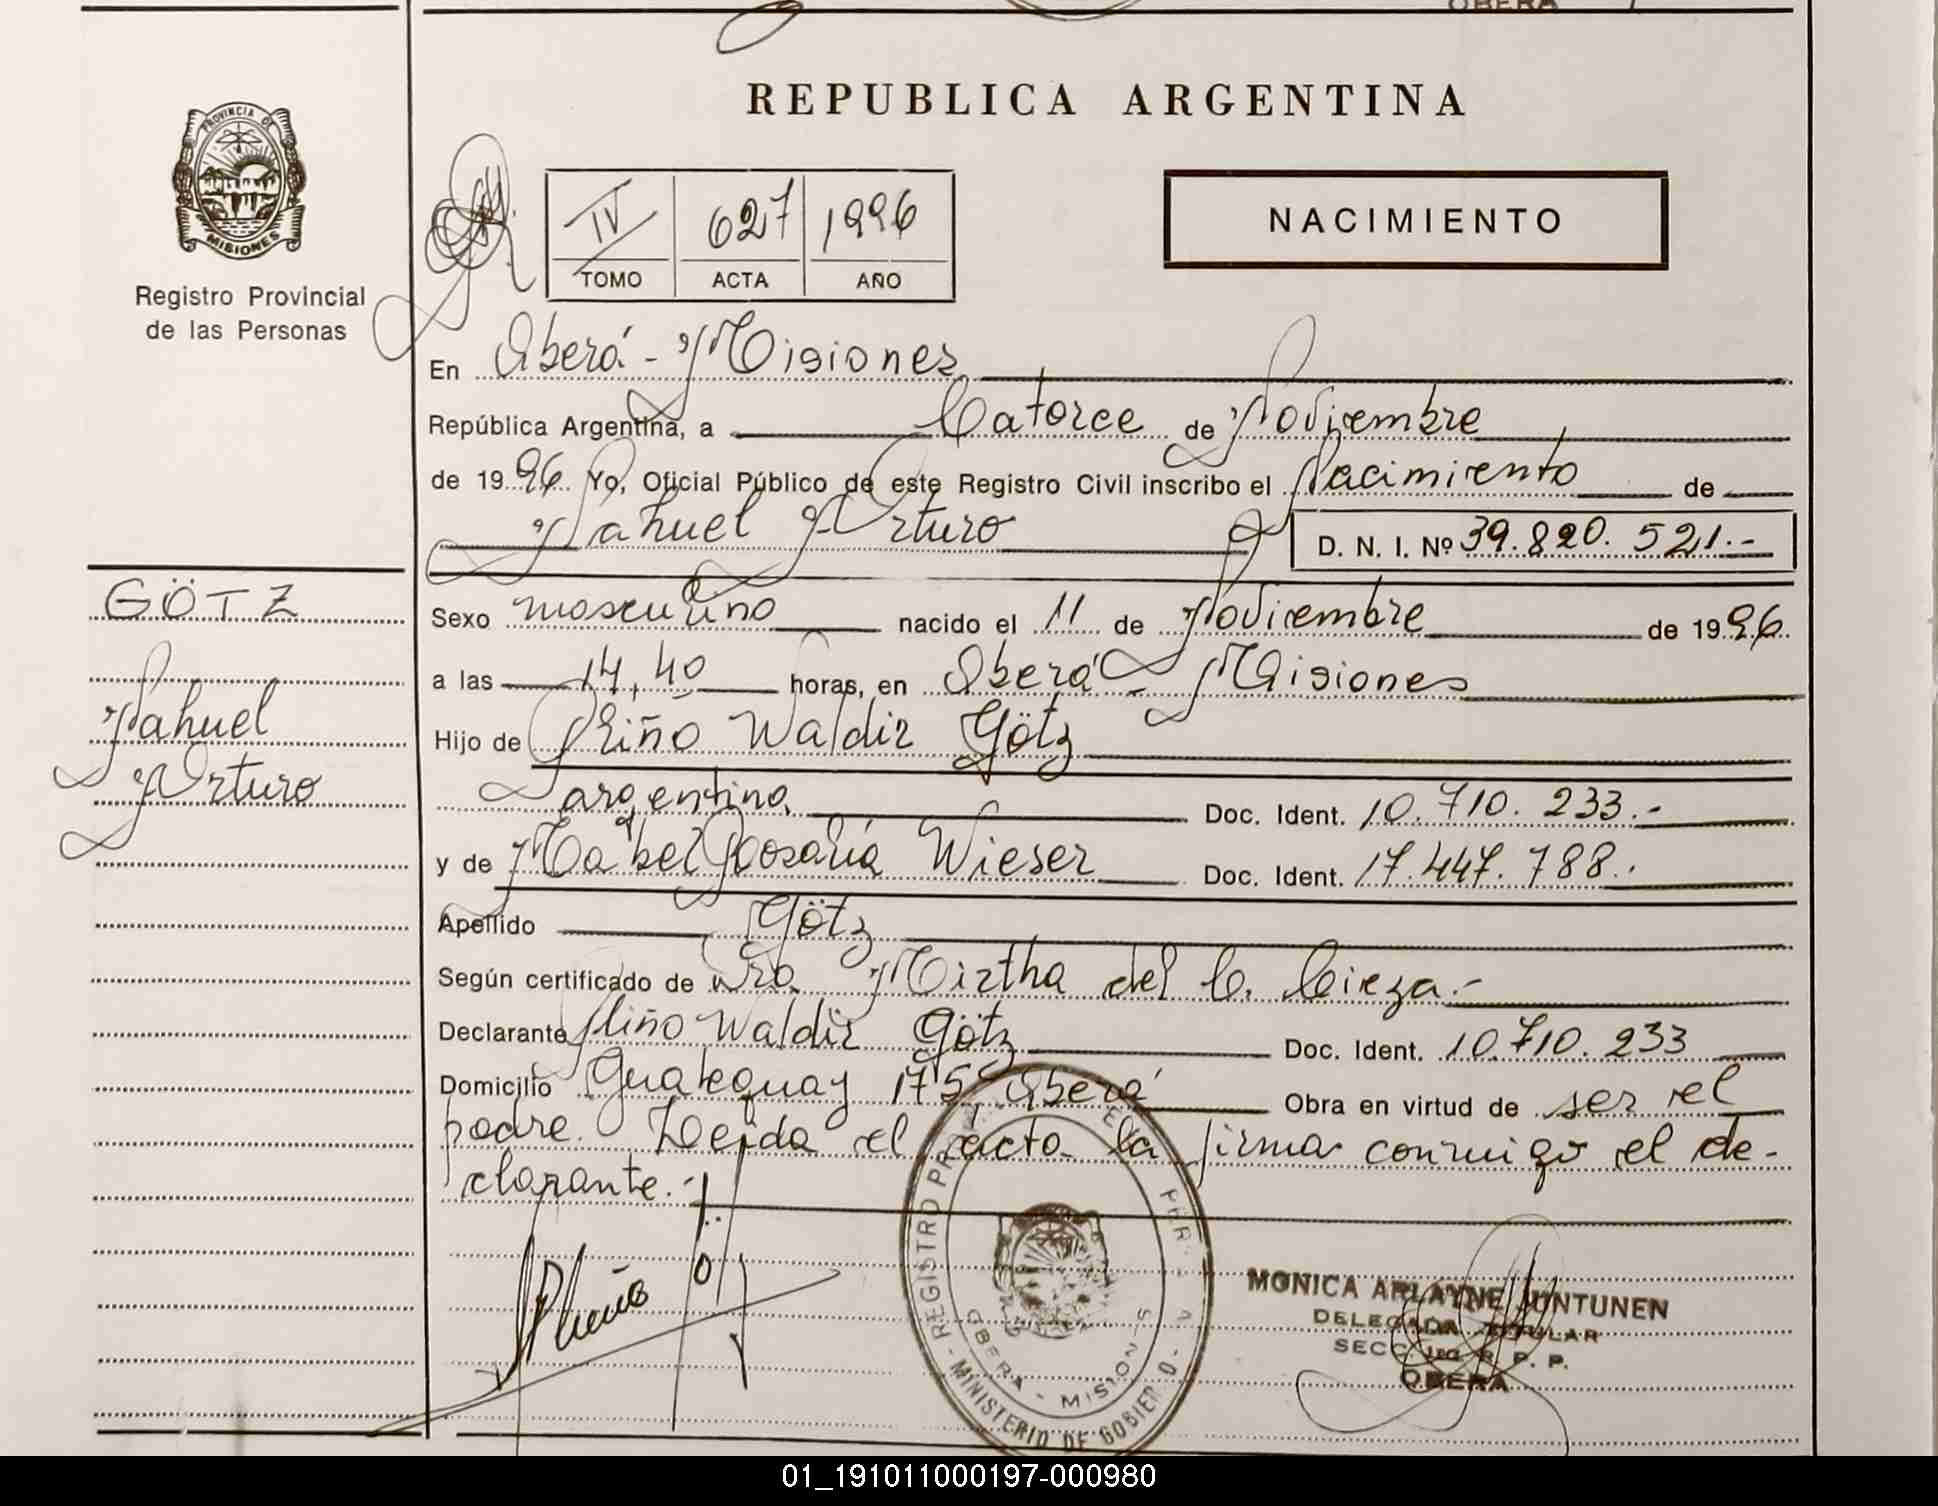 OBERA
REPUBLICA ARGENTINA
PROVINCIA DE
MISIONES
Registro Provincial
de las Personas
IV 627 1996
TOMO ACTA AÑO
NACIMIENTO
En Oberá - Misiones
República Argentina, a Catorce de Noviembre
de 1996. Yo, Oficial Público de este Registro Civil inscribo el Nacimiento de
Nahuel Arturo D. N. I. Nº 39.820.521.-
GÖTZ
Nahuel
Arturo
Sexo masculino nacido el 11 de Noviembre de 1996.
a las 14,40 horas, en Oberá - Misiones
Hijo de Pliño Waldir Götz
argentino. Doc. Ident. 10.710.233.-
y de Mabel Rosalía Wieser Doc. Ident. 17.447.788.-
Apellido Götz
Según certificado de Dra. Mirtha del C. Cieza.-
Declarante Pliño Waldir Götz Doc. Ident. 10.710.233
Domicilio 175 Oberá Obra en virtud de ser el
padre. Leída el acta la firma conmigo el de-
clarante.-
REGISTRO PROV. PER.
OBERA - MISIONES
- MINISTERIO DE GOBIERNO -
MONICA ARLAYNE JUNTUNEN
DELEGADA TITULAR
SECC. 1ra R. P. P.
OBERA
01_191011000197-000980